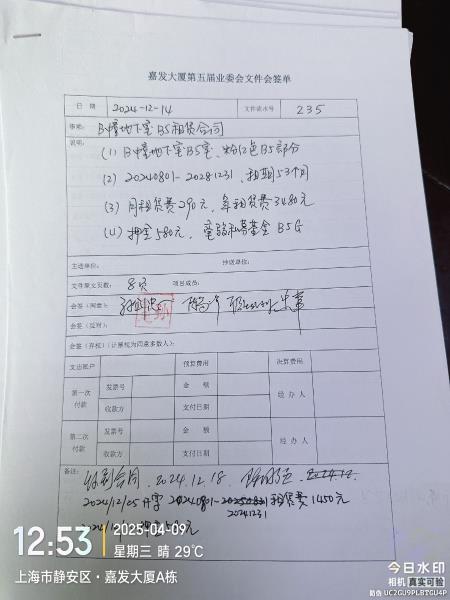 嘉发大厦第五届业委会文件会签单
日 期 2024-12-14 文件流水号 235
事项: B幢地下室B5租赁合同
说明:
(1) B幢地下室B5室、粉红色B5部分
(2) 20240801-20281231、租期53个月
(3) 月租赁费290元、年租赁费3480元
(4) 押金580元、
主送单位: 抄送单位:
文件原文页数: 8页 项目成员:
会签(同意):
会签(反对):
会签(弃权)(计票视为同意多数人):
支出账户 预算费用 决算费用
第一次付款 发票号 金 额 经 办 人
收款方 支付日期
第二次付款 发票号 金 额 经 办 人
收款方 支付日期
备注: 合同、2024.12.18
2024/12/25 租赁费1450元
20241231
12:53 2025-04-09
星期三 晴 29℃
上海市静安区·嘉发大厦A栋
今日水印
相机 真实可验
防伪 UC2GU9PLBTGU4P